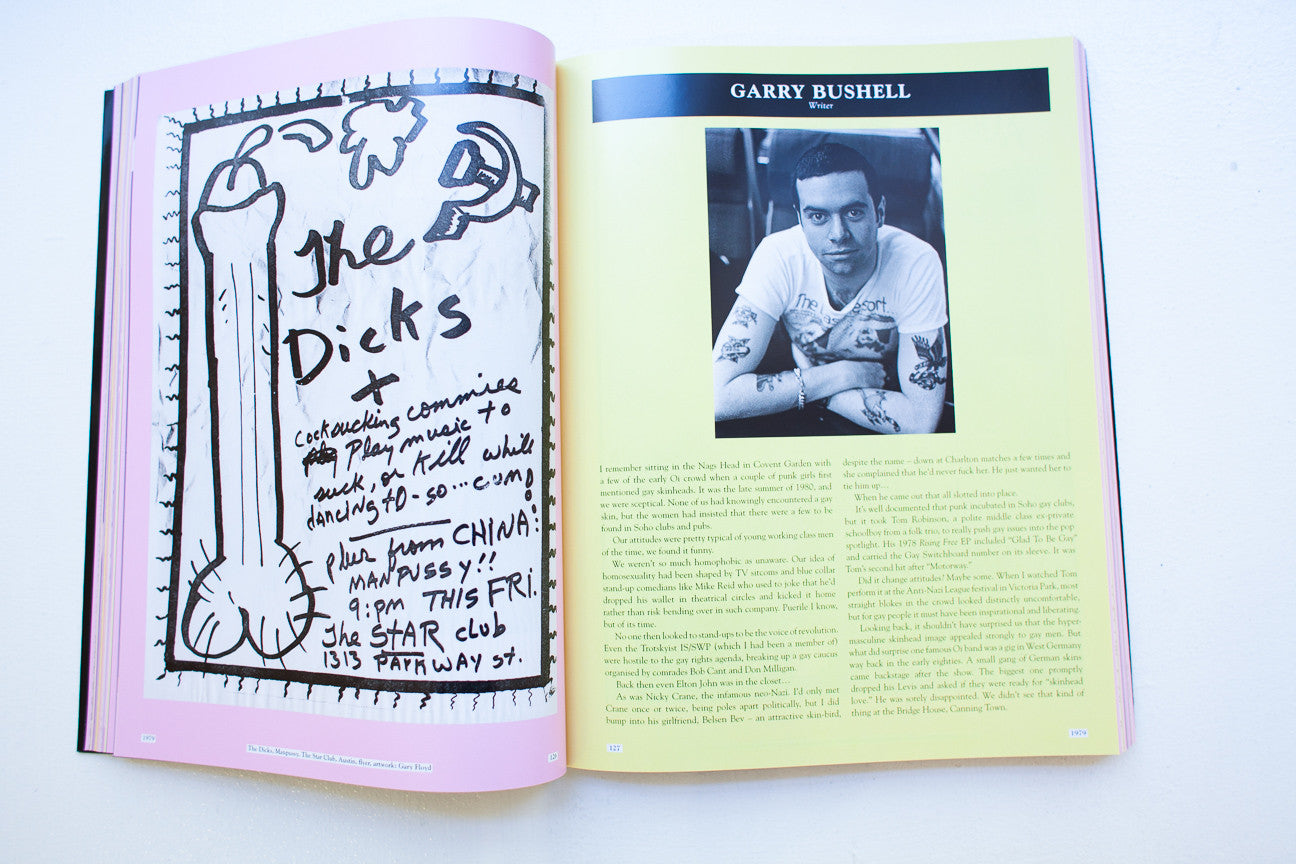 The
Dicks
+
Cocksucking commies
Play music to
suck, or kill while
dancing to - so... cum!
plus from CHINA!
MANPUSSY!!
9:pm THIS FRI.
The STAR club
1313 PARKWAY st.
1979
The Dicks, Manpussy, The Star Club, Austin, flyer, artwork: Gary Floyd
126
GARRY BUSHELL
Writer
The Last Resort
I remember sitting in the Nags Head in Covent Garden with
a few of the early Oi crowd when a couple of punk girls first
mentioned gay skinheads. It was the late summer of 1980, and
we were sceptical. None of us had knowingly encountered a gay
skin, but the women had insisted that there were a few to be
found in Soho clubs and pubs.
Our attitudes were pretty typical of young working class men
of the time, we found it funny.
We weren't so much homophobic as unaware. Our idea of
homosexuality had been shaped by TV sitcoms and blue collar
stand-up comedians like Mike Reid who used to joke that he'd
dropped his wallet in theatrical circles and kicked it home
rather than risk bending over in such company. Puerile I know,
but of its time.
No one then looked to stand-ups to be the voice of revolution.
Even the Trotskyist IS/SWP (which I had been a member of)
were hostile to the gay rights agenda, breaking up a gay caucus
organised by comrades Bob Cant and Don Milligan.
Back then even Elton John was in the closet...
As was Nicky Crane, the infamous neo-Nazi. I'd only met
Crane once or twice, being poles apart politically, but I did
bump into his girlfriend, Belsen Bev – an attractive skin-bird,
despite the name – down at Charlton matches a few times and
she complained that he'd never fuck her. He just wanted her to
tie him up...
When he came out that all slotted into place.
It's well documented that punk incubated in Soho gay clubs,
but it took Tom Robinson, a polite middle class ex-private
schoolboy from a folk trio, to really push gay issues into the pop
spotlight. His 1978 Rising Free EP included "Glad To Be Gay"
and carried the Gay Switchboard number on its sleeve. It was
Tom's second hit after "Motorway."
Did it change attitudes? Maybe some. When I watched Tom
perform it at the Anti-Nazi League festival in Victoria Park, most
straight blokes in the crowd looked distinctly uncomfortable,
but for gay people it must have been inspirational and liberating.
Looking back, it shouldn't have surprised us that the hyper-
masculine skinhead image appealed strongly to gay men. But
what did surprise one famous Oi band was a gig in West Germany
way back in the early eighties. A small gang of German skins
came backstage after the show. The biggest one promptly
dropped his Levis and asked if they were ready for "skinhead
love." He was sorely disappointed. We didn't see that kind of
thing at the Bridge House, Canning Town.
127
1979